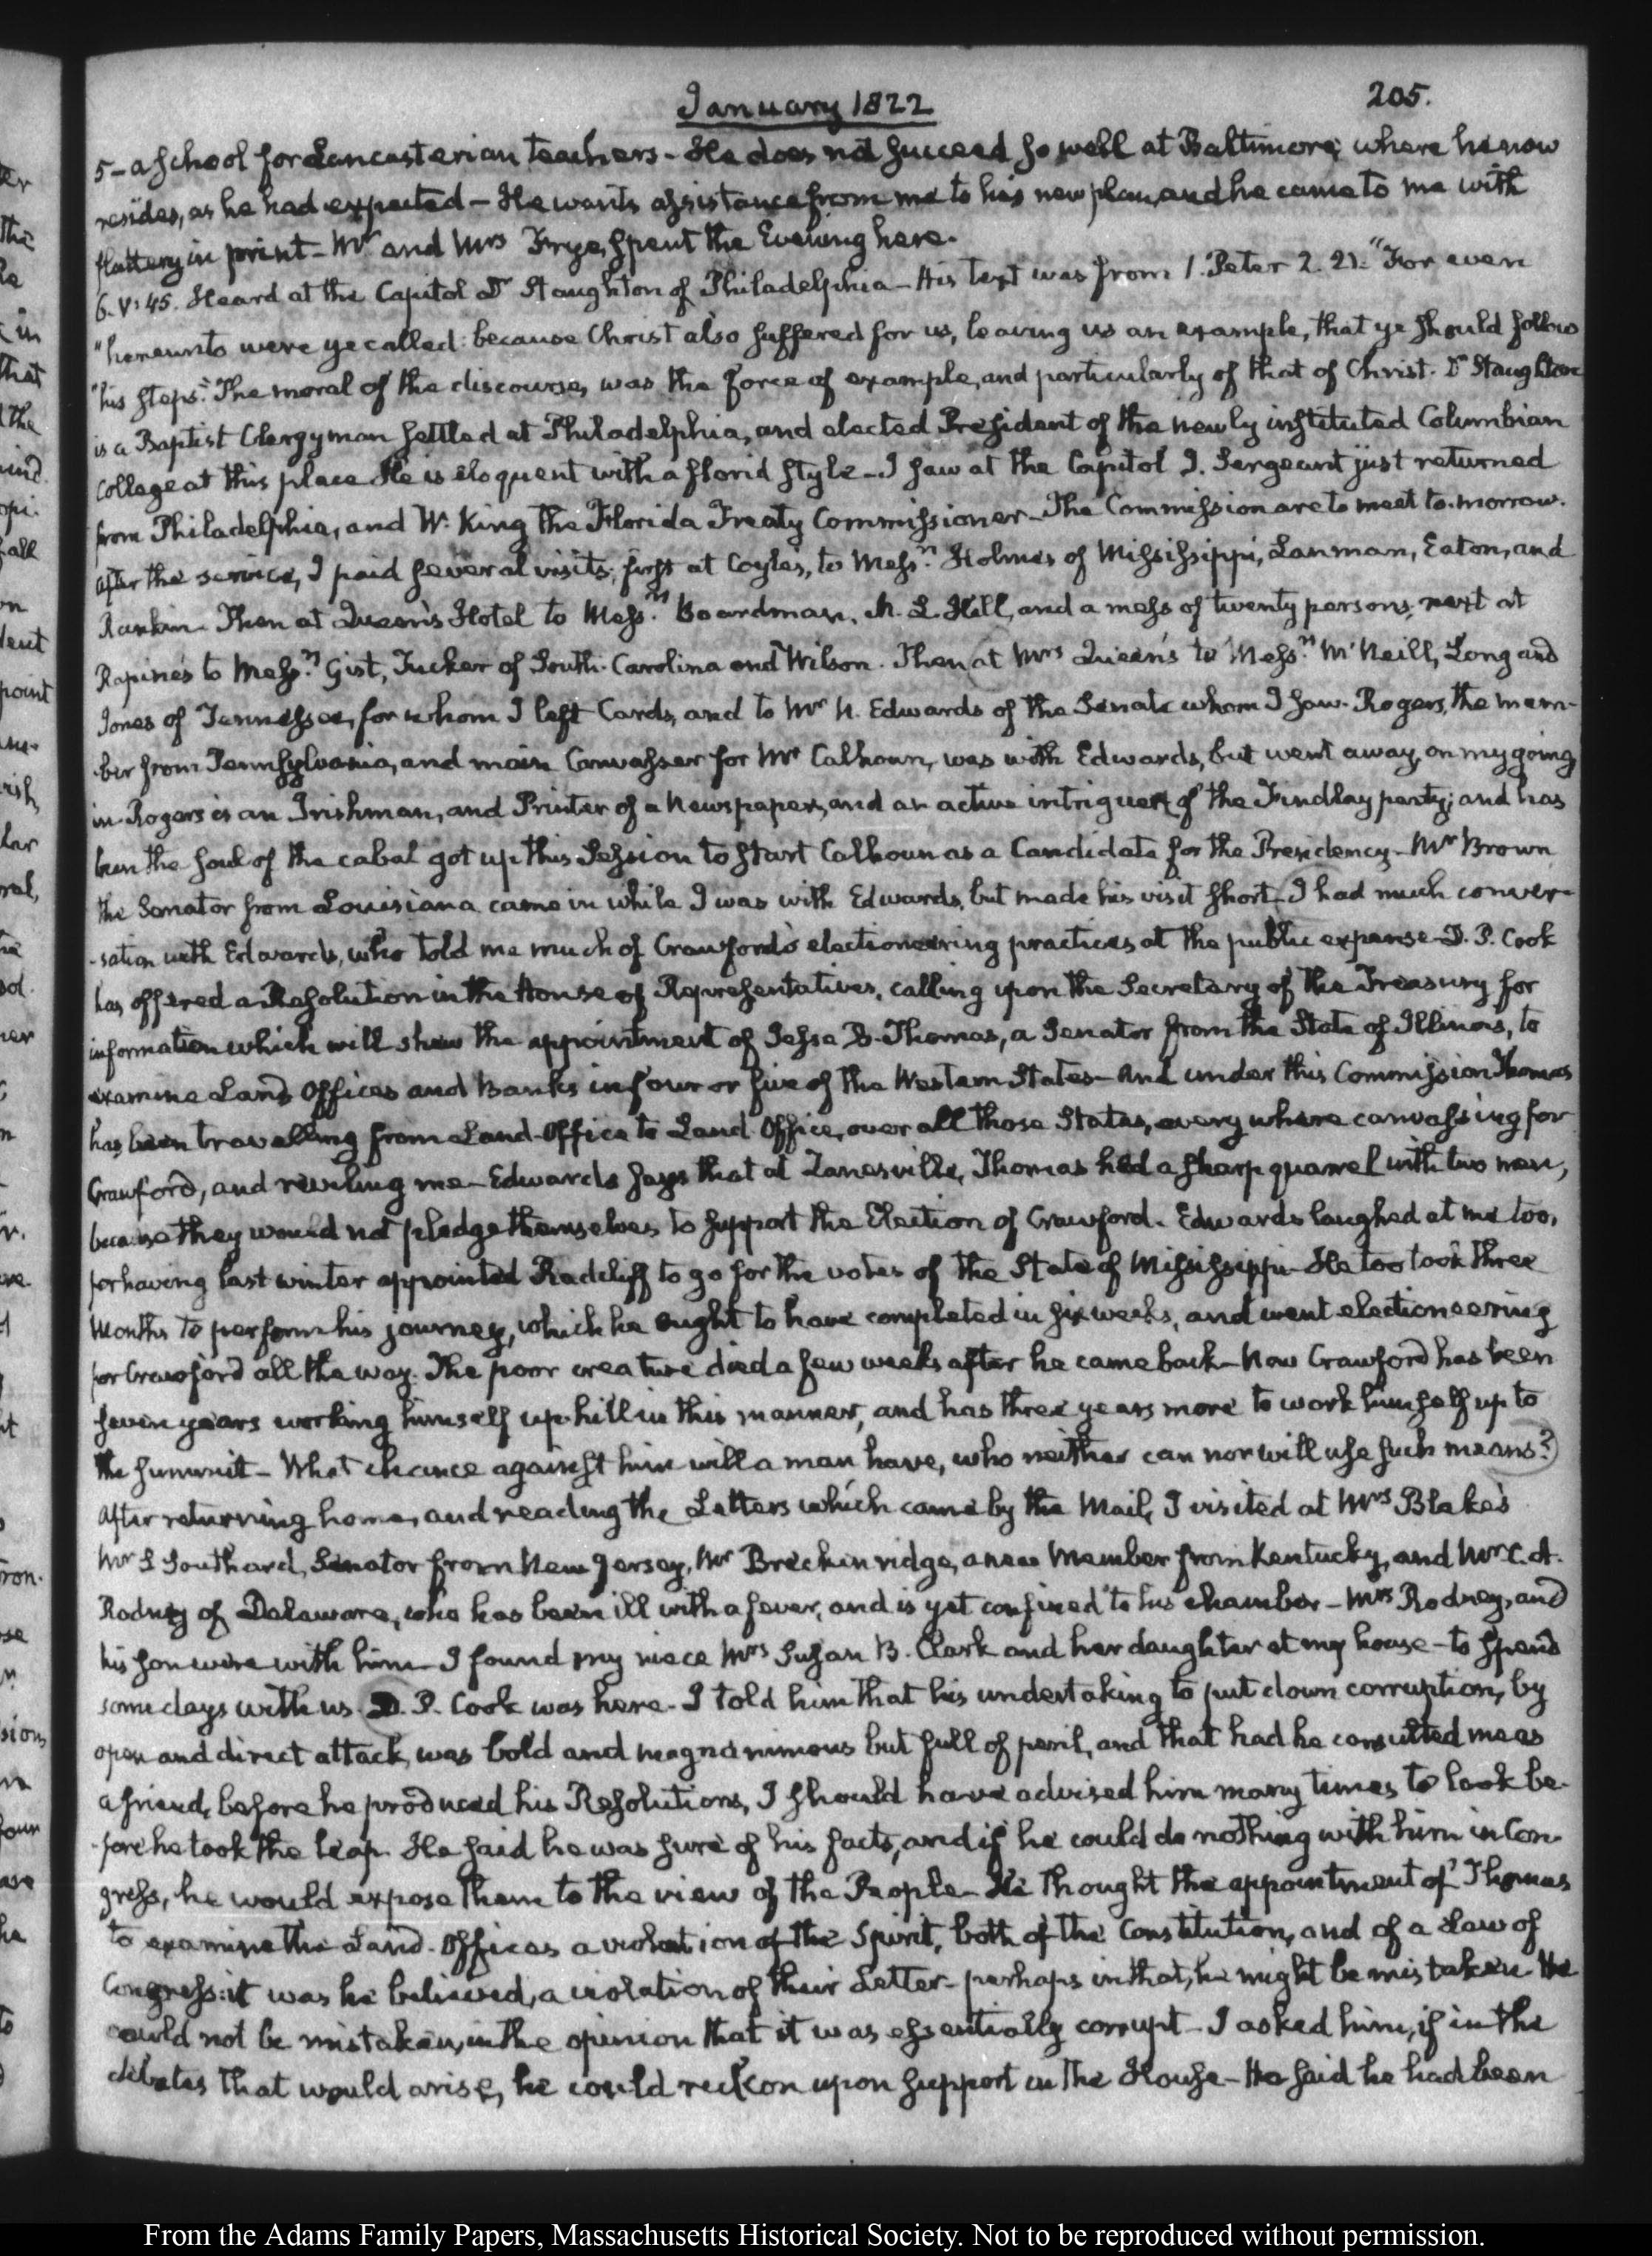 January 1822
205.
5- a School for Lancasterian teachers - He does not succeed so well at Baltimore, where he now
resides, as he had expected - He wants assistance from me to his new plan, and he came to me with
flattery in print - Mr and Mrs Frye, spent the Evening here.
6. V:45. Heard at the Capitol Dr Staughton of Philadelphia - His text was from 1. Peter 2. 21. "For even
"hereunto were ye called: because Christ also suffered for us, leaving us an example, that ye should follow
"his steps." The moral of the discourse, was the force of example, and particularly of that of Christ. Dr Staughton
is a Baptist Clergyman settled at Philadelphia, and elected President of the newly instituted Columbian
College at this place He is eloquent with a florid style - I saw at the Capitol J. Sergeant just returned
from Philadelphia, and W. King the Florida Treaty Commissioner - The Commission are to meet to-morrow.
After the service, I paid several visits; first at Coyle's, to Messrs Holmes of Mississippi, Lanman, Eaton, and
Rankin. Then at Queen's Hotel to Messrs Boardman, M. L. Hill, and a mess of twenty persons; next at
Rapine's to Messrs Gist, Tucker of South-Carolina and Wilson. Then at Mrs Queen's to Messrs McNeill, Long and
Jones of Tennessee, for whom I left Cards, and to Mr N. Edwards of the Senate whom I saw. Rogers, the mem-
-ber from Pennsylvania, and main Canvasser for Mr Calhoun, was with Edwards, but went away, on my going
in. Rogers is an Irishman, and Printer of a Newspaper, and an active intriguer of the Findlay party; and has
been the soul of the cabal got up this Session to start Calhoun as a Candidate for the Presidency - Mr Brown
the Senator from Louisiana came in while I was with Edwards, but made his visit short - I had much conver-
-sation with Edwards, who told me much of Crawford's electioneering practices at the public expense - D. P. Cook
has offered a Resolution in the House of Representatives, calling upon the Secretary of the Treasury for
information which will shew the appointment of Jesse B. Thomas, a Senator from the State of Illinois, to
examine Land Offices and Banks in four or five of the Western States - And under this Commission Thomas
has been travelling from Land-Office to Land Office, over all those States, every where canvassing for
Crawford, and reviling me - Edwards says that at Zanesville, Thomas had a sharp quarrel with two men,
because they would not pledge themselves to support the Election of Crawford. Edwards laughed at me too,
for having last winter appointed Radcliff to go for the votes of the State of Mississippi - He too took three
months to perform his journey, which he ought to have completed in six weeks, and went electioneering
for Crawford all the way. The poor creature died a few weeks after he came back - Now Crawford has been
seven years working himself up-hill in this manner, and has three years more to work himself up to
the summit - What chance against him will a man have, who neither can nor will use such means?
After returning home, and reading the Letters which came by the Mail, I visited at Mrs Blake's
Mr S Southard, Senator from New Jersey, Mr Breckinridge, a new Member from Kentucky, and Mr C. A.
Rodney of Delaware, who has been ill with a fever, and is yet confined to his chamber - Mrs Rodney, and
his son were with him - I found my niece Mrs Susan B. Clark and her daughter at my house - to spend
some days with us. D. P. Cook was here. I told him that his undertaking to put down corruption, by
open and direct attack, was bold and magnanimous but full of peril, and that had he consulted me as
a friend, before he produced his Resolutions, I should have advised him many times to look be-
-fore he took the leap. He said he was sure of his facts, and if he could do nothing with him in Con-
gress, he would expose them to the view of the People - He thought the appointment of Thomas
to examine the Land-Offices a violation of the Spirit, both of the Constitution, and of a Law of
Congress: it was he believed, a violation of their Letter - perhaps in that, he might be mistaken He
could not be mistaken, in the opinion that it was essentially corrupt - I asked him, if in the
debates that would arise, he could reckon upon support in the House - He said he had been
From the Adams Family Papers, Massachusetts Historical Society. Not to be reproduced without permission.